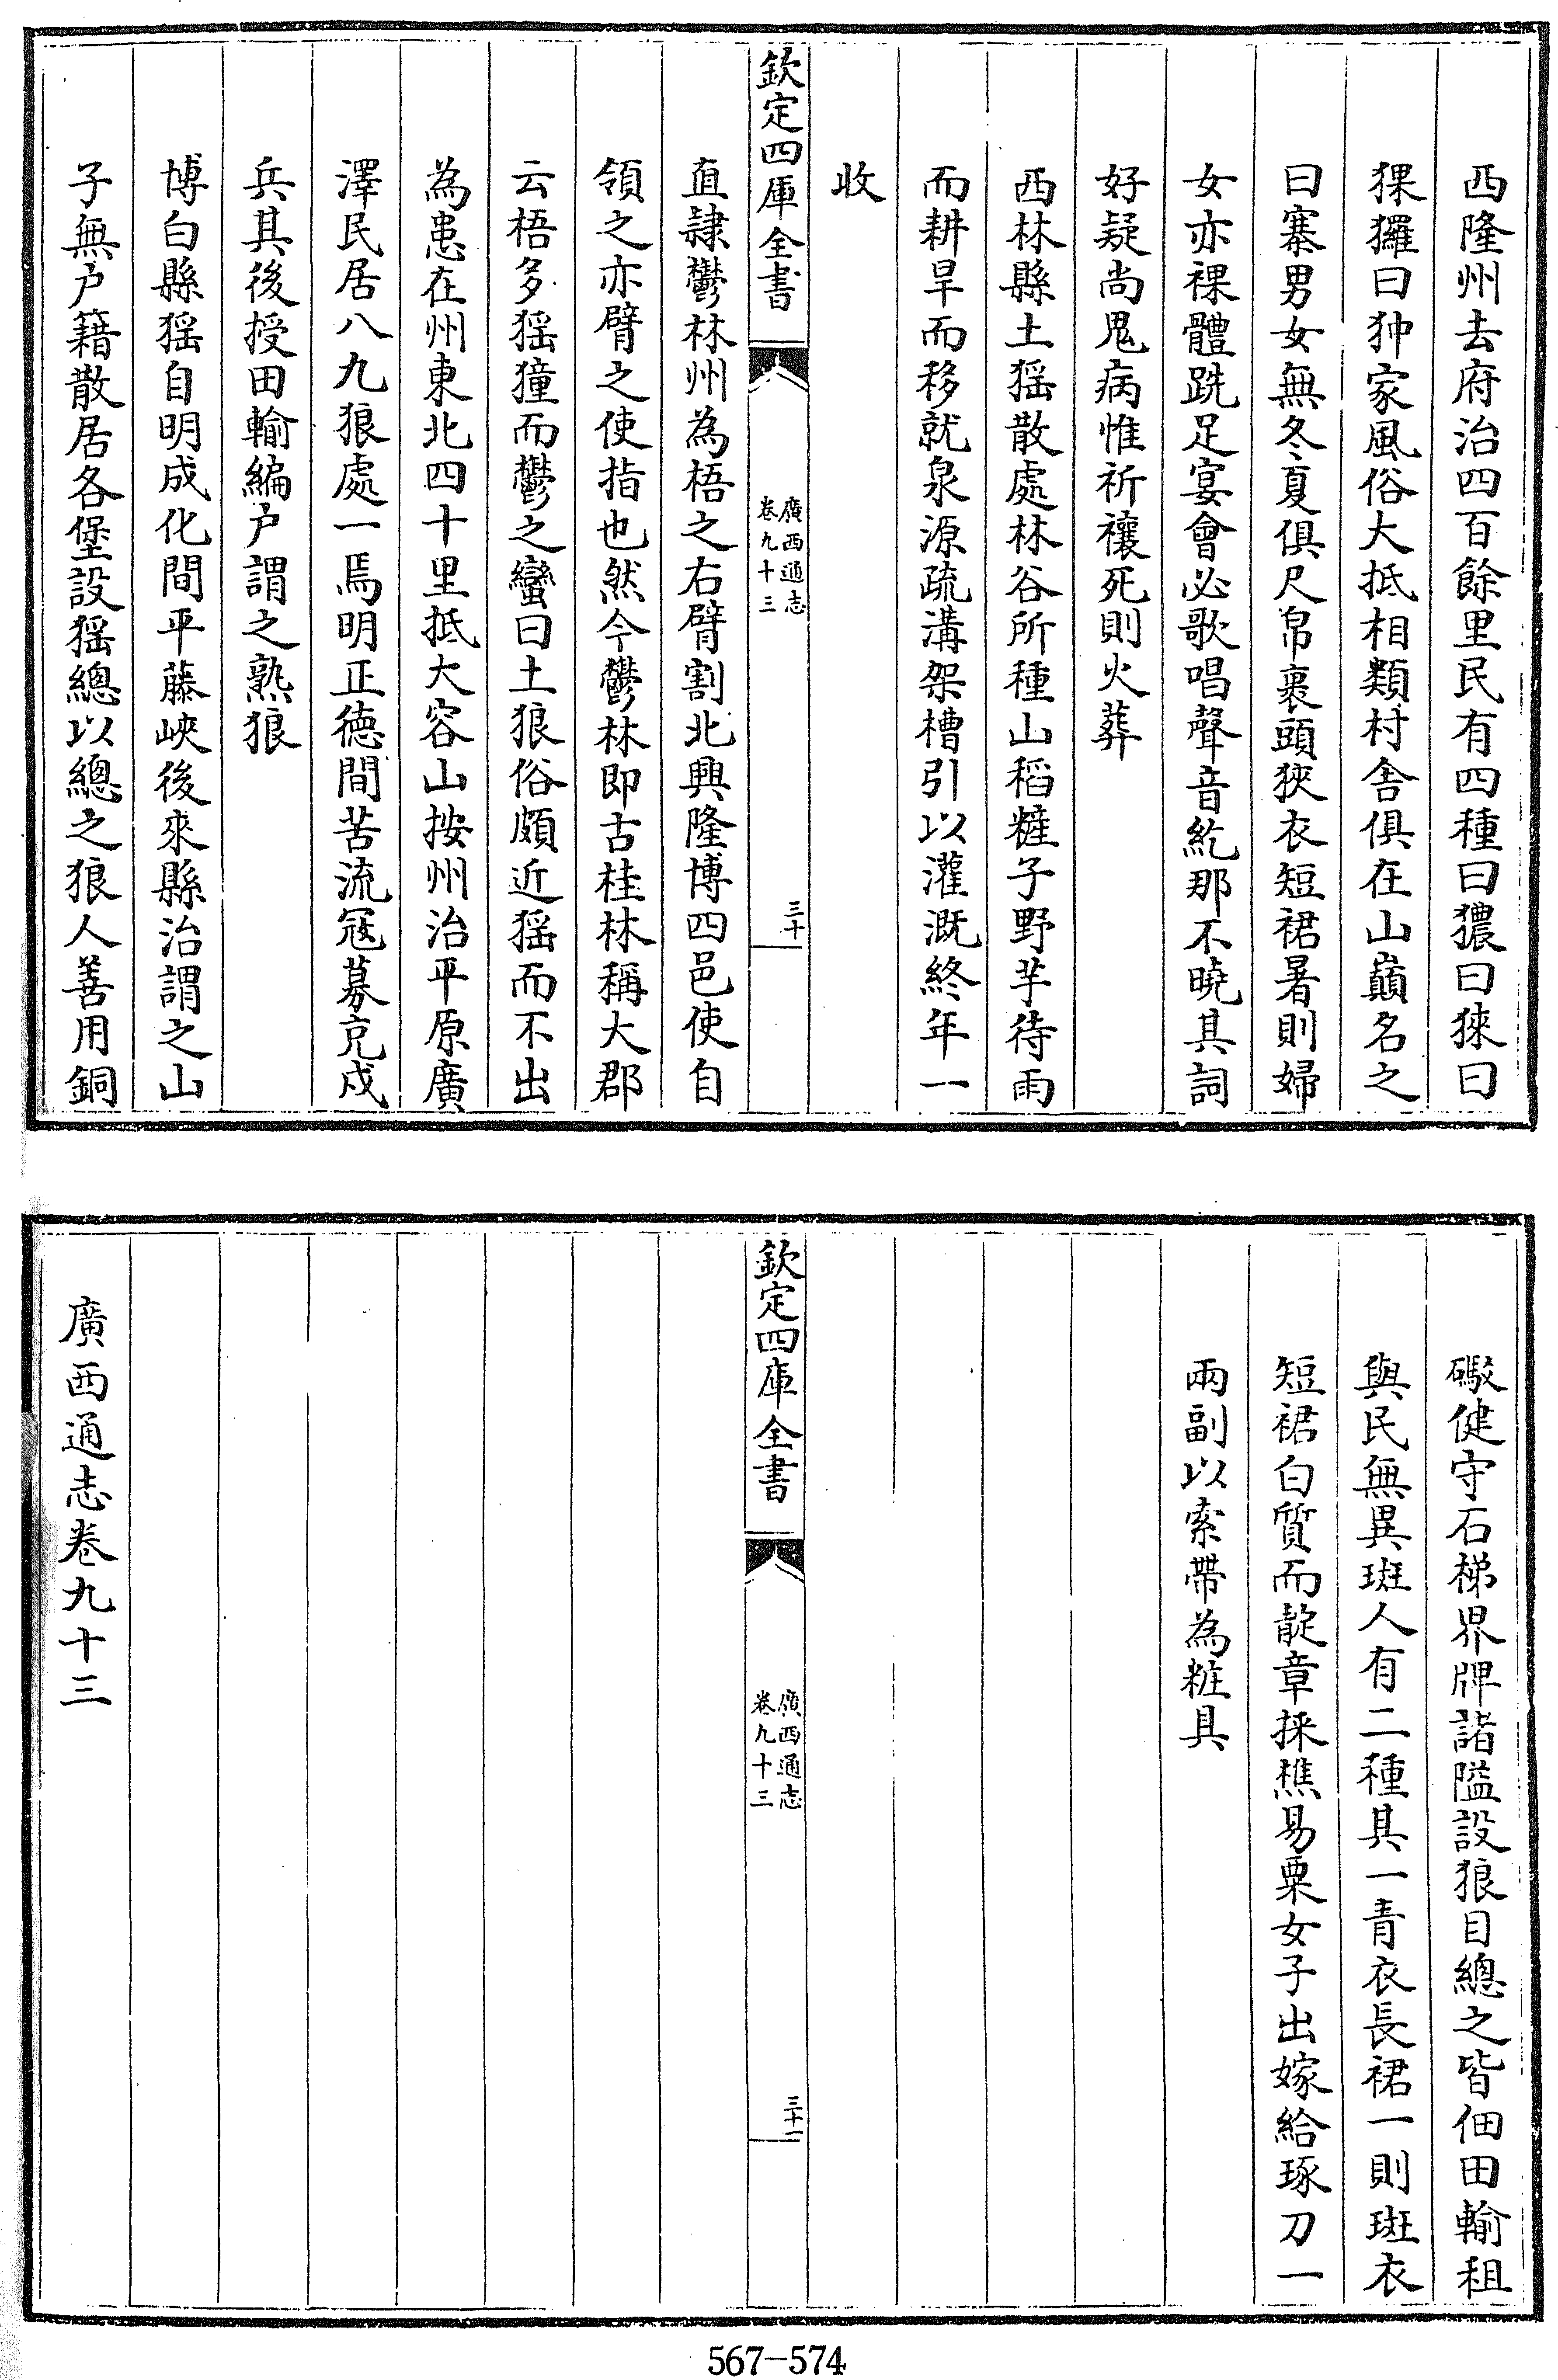 西隆州去府治四百餘里民有四種曰獽曰猍曰
猓玀曰狆家風俗大抵相類村舍俱在山巔名之
曰寨男女無冬夏俱尺帛裹頭狹衣短裙暑則婦
女亦裸體跣足宴會必歌唱聲音紇那不曉其詞
好疑尚鬼病惟祈禳死則火葬
西林縣土猺散處林谷所種山稻䅽子野芋待雨
而耕旱而移就泉源疏溝架槽引以灌溉終年一
收
欽定四庫全書
廣西通志
卷九十三
三十
直隸鬱林州為梧之右臂割北興隆博四邑使自
領之亦臂之使指也然今鬱林即古桂林稱大郡
云梧多猺獞而鬱之蠻曰土狼俗頗近猺而不出
為患在州東北四十里抵大容山按州治平原廣
澤民居八九狼處一焉明正德間苦流寇募充戍
兵其後授田輸編户謂之熟狼
博白縣猺自明成化間平藤峽後來縣治謂之山
子無户籍散居各堡設猺總以總之狼人善用銅
礮健守石梯界牌諸隘設狼目總之皆佃田輸租
與民無異斑人有二種其一青衣長裙一則斑衣
短裙白質而靛章採樵易粟女子出嫁給琢刀一
兩副以索帶為粧具
欽定四庫全書
廣西通志
卷九十三
三十一
廣西通志卷九十三
567-574